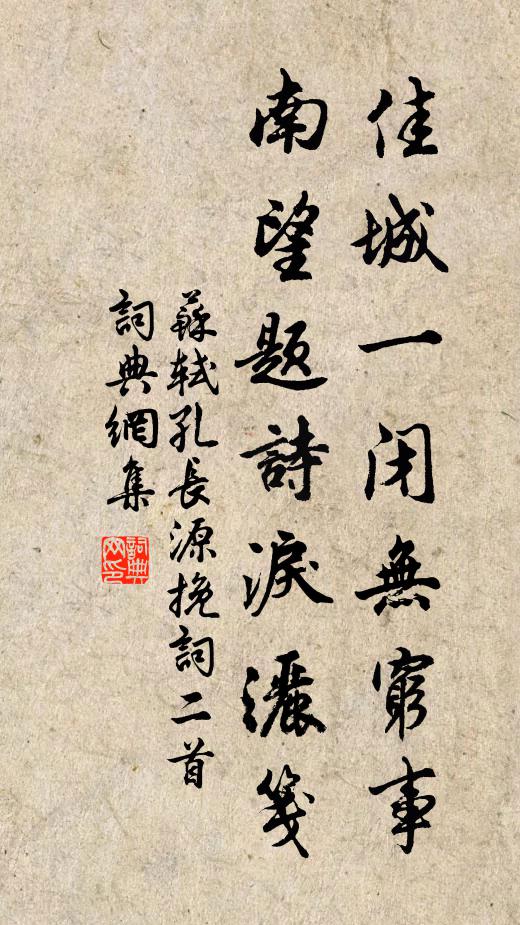 佳城一闭無窮事
南望题詩淚灑箋
蘇軾孔長源挽詞二首
詞典網集
詞典网印